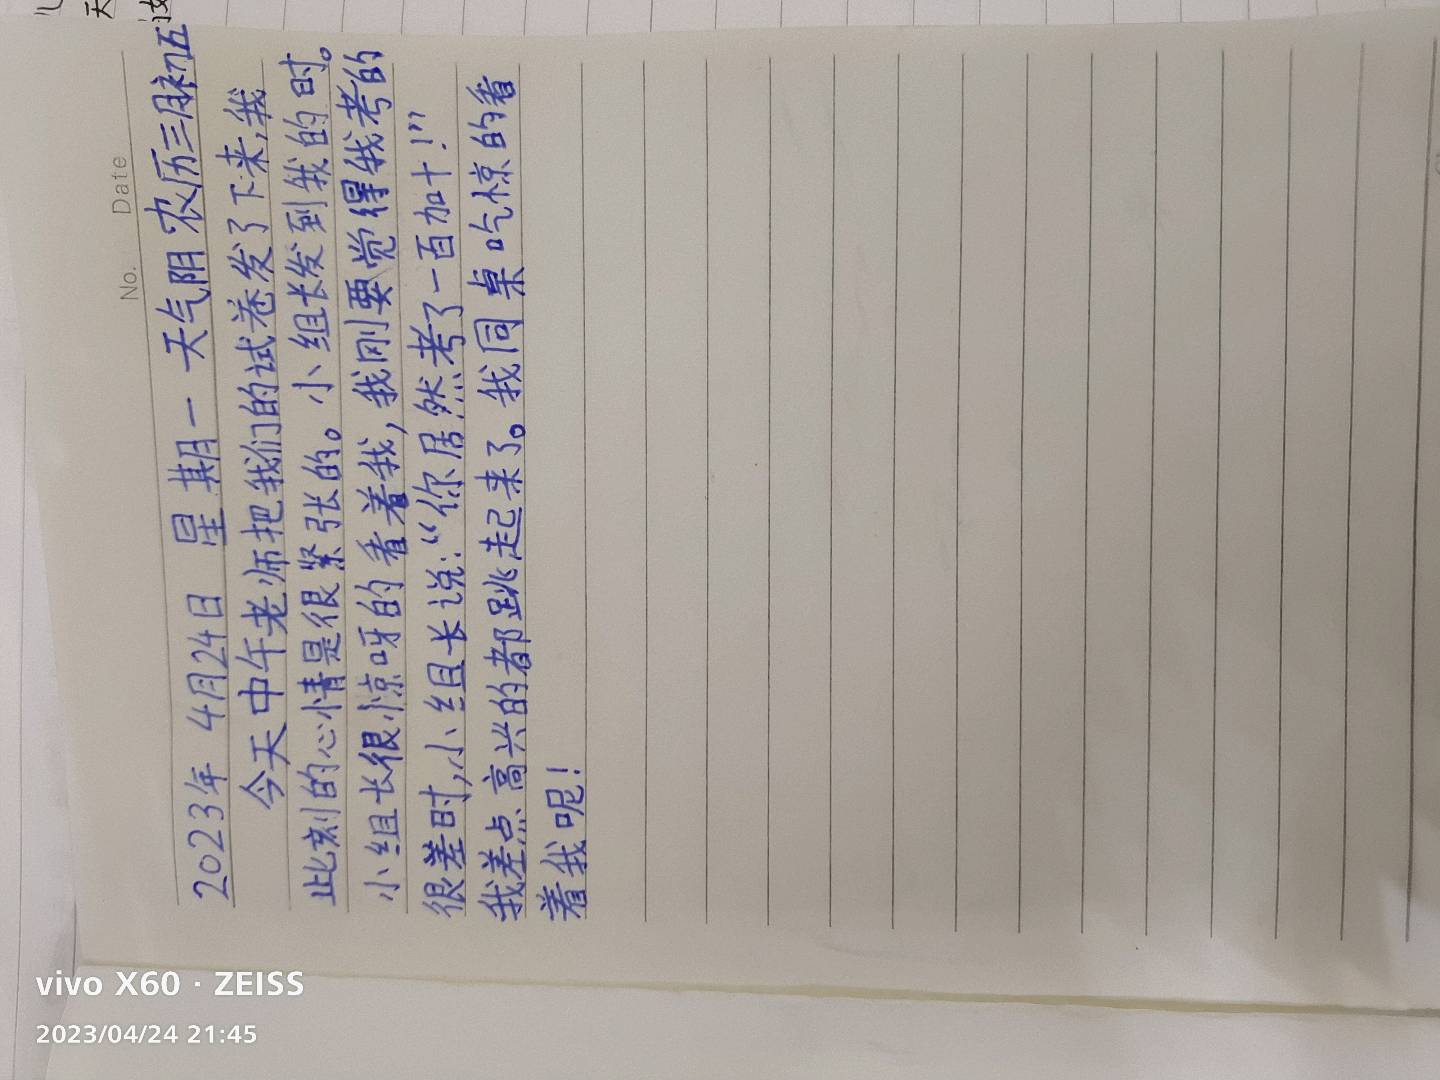 No.    Date
2023年 4月24日 星期一 天气阴 农历三月初五
今天中午老师把我们的试卷发了下来,我
此刻的心情是很紧张的。小组长发到我的时。
小组长很惊呀的看着我,我刚要觉得我考的
很差时,小组长说:“你居然考了一百加十!”
我差点高兴的都跳起来了。我同桌吃惊的看
着我呢!
vivo X60 · ZEISS
2023/04/24 21:45